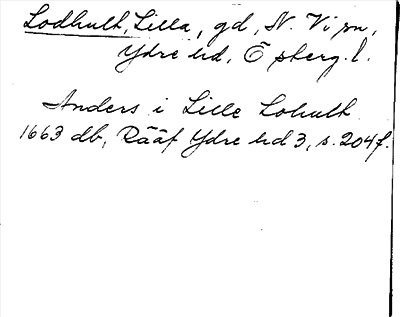 Lodhult, Lilla, gd, N. Vi sn,
Ydre hd, Ö stberg. l.
Anders i Lille Lohult
1663 db, Rääf Ydre hd 3, s. 204 f.